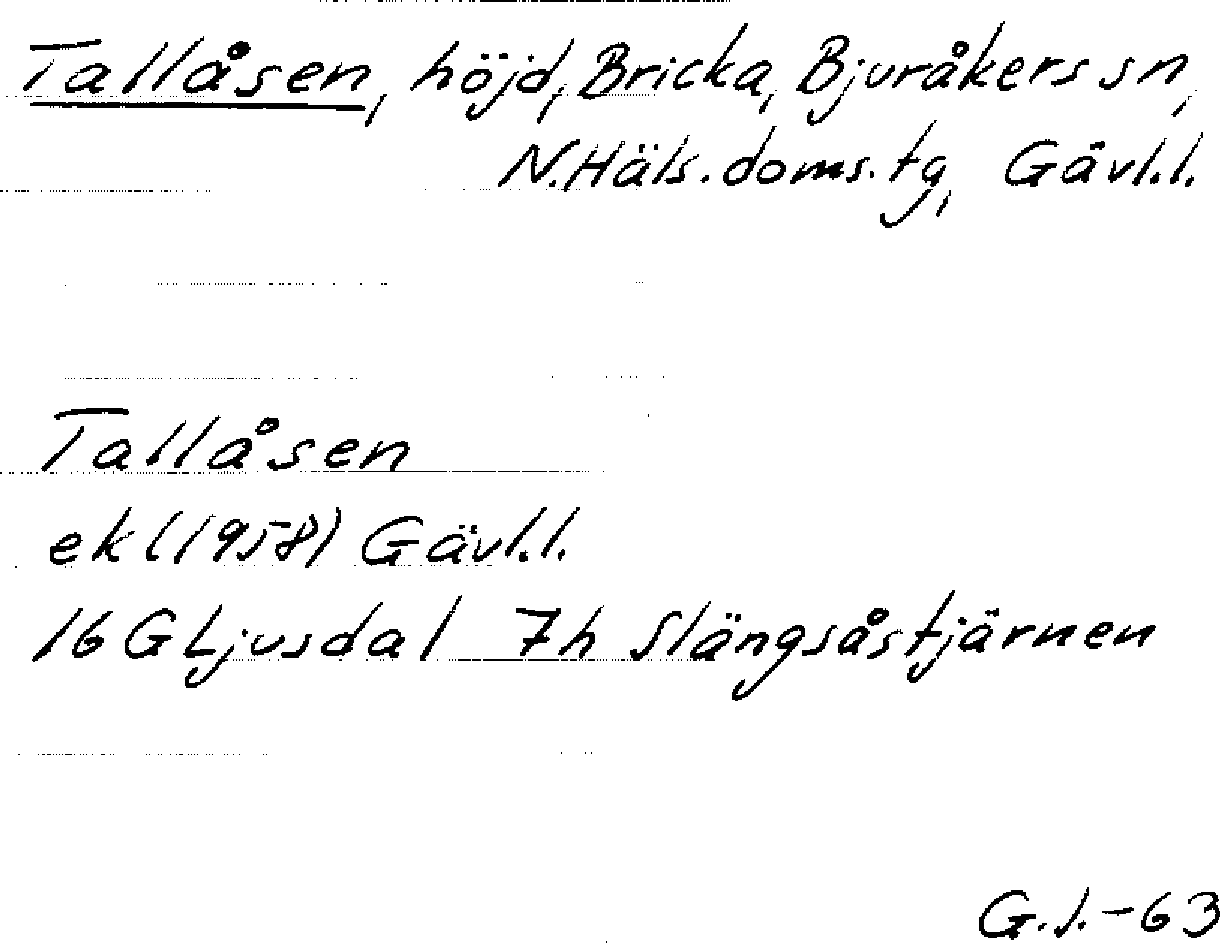 Tallåsen, höjd, Bricka, Bjuråkers sn,
N.Häls.doms.tg, Gävl.l.
Tallåsen
ek (1958) Gävl.l.
16 G Ljusdal 7h Slängsåstjärnen
G.J.-63